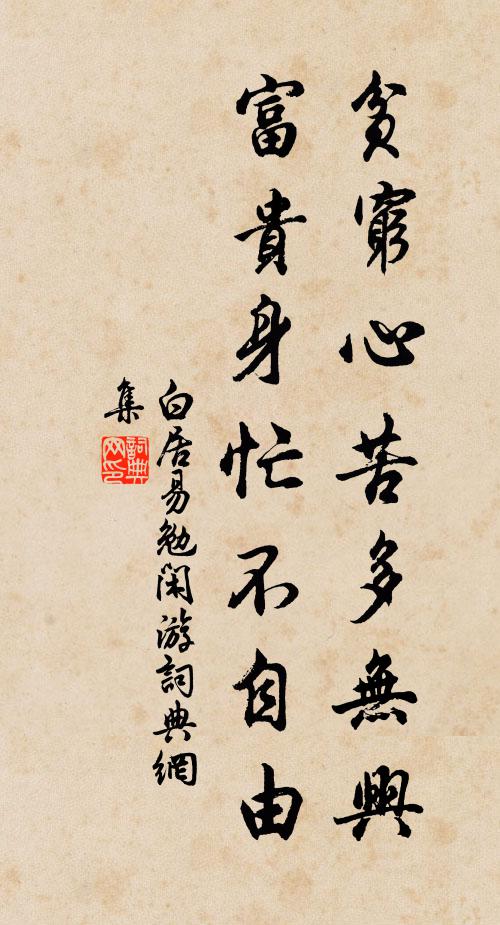 貧窮心苦多無興
富貴身忙不自由
白居易勉閑游詞典網
集
詞典
网印